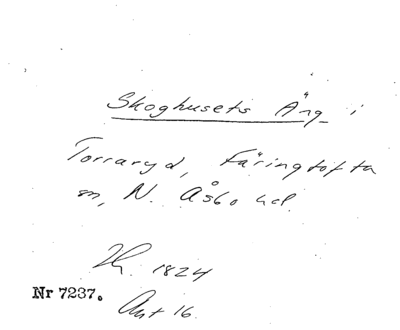 Skoghusets Äng i
Torraryd, Färingtofta
sn, N. Åsbo hd.
1824
Nr 7237.
Akt 16.